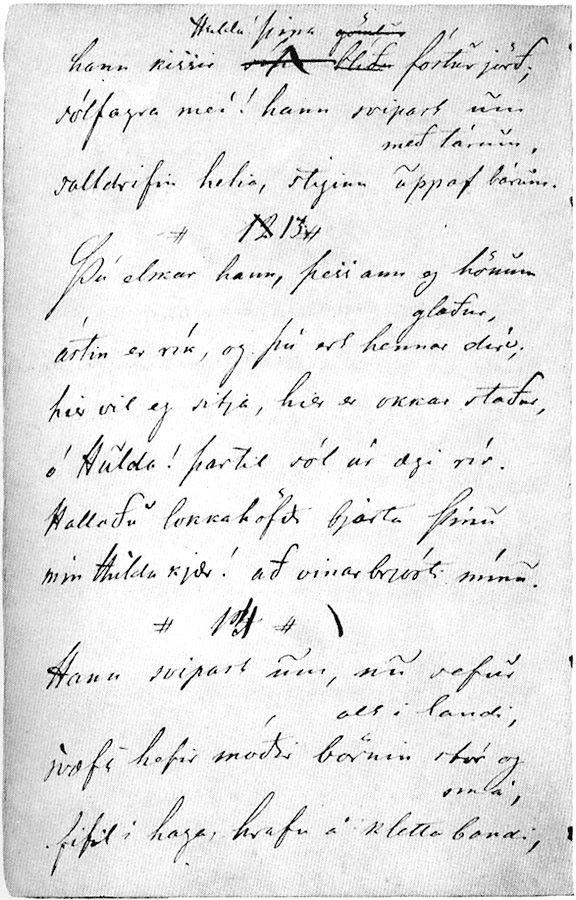 Hulda! þína gömlu
hann kissir blíðu fósturjörð;
sólfagra mei! hann svipast um
með tárum,
salldrifin hetja, stiginn uppaf bárum.
# 12 13 #
Þú elskar hann, þess ann eg hönum
glaður,
ástin er rík, og þú ert hennar dís;
hier vil eg sitja, hier er okkar staður,
ó Hulda! þartil sól úr ægi rís.
Hallaðu lokkahöfði bjarta þínu
mín Hulda kjær! að vinarbrjósti mínu.
# 14 #
Hann svipast um, nú sefur
allt í landi,
svæft hefir móðir börnin stór og
smá,
fífil í haga, hrafn á klettabandi,